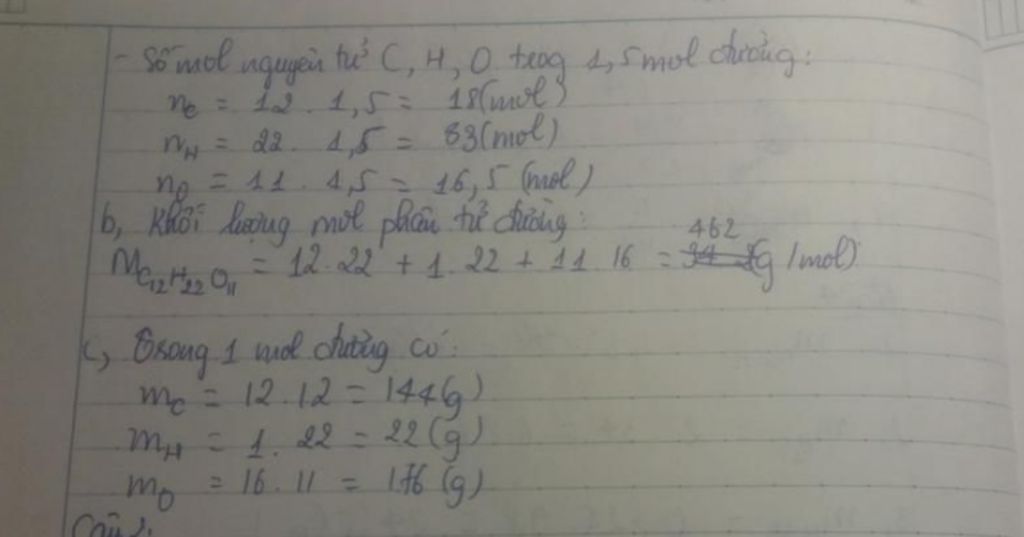 - Số mol nguyên tử C, H, O trog 1,5 mol đường:
nC = 12 . 1,5 = 18 (mol)
nH = 22 . 1,5 = 33 (mol)
nO = 11 . 1,5 = 16,5 (mol)
b, Khối lượng mol phân tử đường:
462
MC12H22O11 = 12.22 + 1.22 + 11.16 = 342 (g/mol)
c, Trong 1 mol đường có:
mC = 12.12 = 144 (g)
mH = 1. 22 = 22 (g)
mO = 16.11 = 176 (g)
Câu 2: